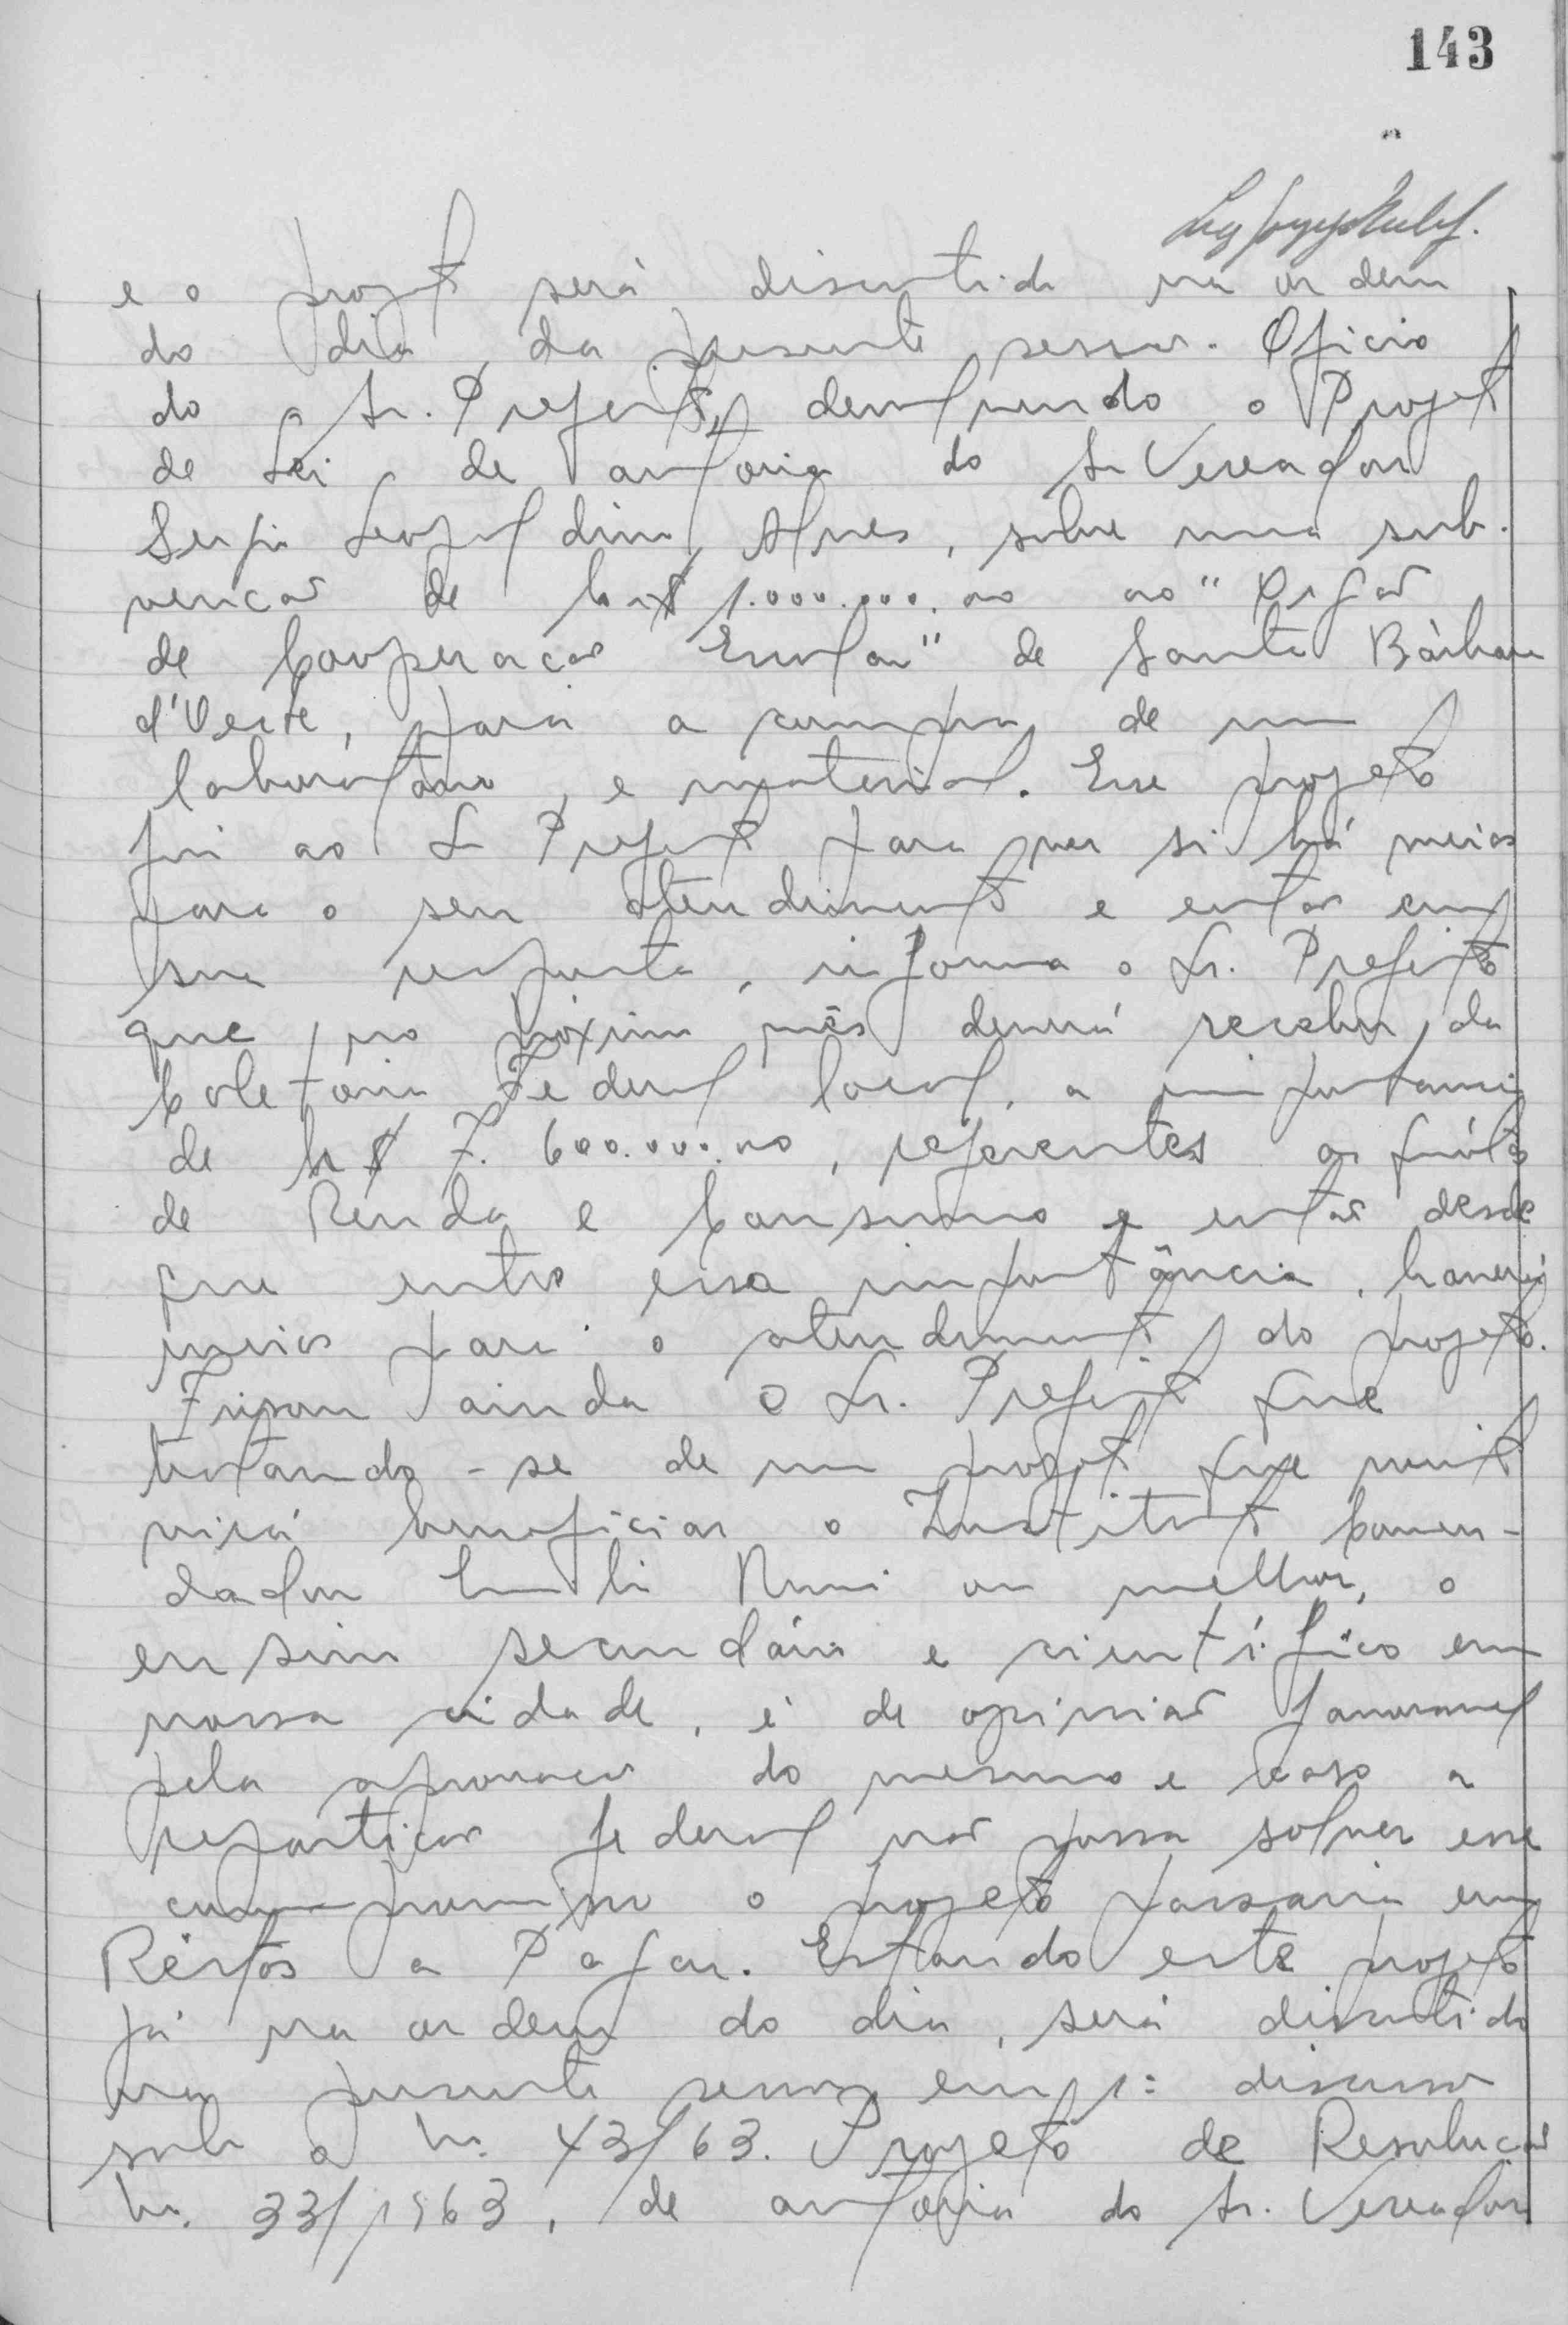 143
e o projeto será discutido na ordem
do dia, da presente sessão. Oficio
do Sr. Prefeito, devolvendo o Projeto
de Lei, de autoria do Sr Vereador
Sergio Leopoldino Alves, sobre uma sub-
venção de Cr$ 1.000.000,00 ao "Orgão
de Cooperação Escolar" de Santa Bárbara
d'Oeste, para a compra de um
laboratório e material. Esse projeto
foi ao Sr Prefeito para ver si há meios
para o seu atendimento e então em
sua resposta, informa o Sr. Prefeito
que no próximo mês deverá receber, da
Coletoria Federal local, a importancia
de Cr$ 7.600.000,00, referentes as quótas
de Renda e Consumo e então desde
que entre essa importância, haverá
meios para o atendimento do projeto.
Frisou ainda o Sr. Prefeito que
tratando-se de um projeto que muito
virá beneficiar o Instituto Comen-
dador Emilio Romi ou melhor, o
ensino secundário e científico em
nossa cidade, é de opinião favoravel
pela aprovação do mesmo e caso a
repartição federal não possa solver esse
compromisso o projeto passaria em
Réstos a Pagar. Estando este projeto
já na ordem do dia, será discutido
na presente sessão em 1ª discussão
sob o Nr. 43/63. Projeto de Resolução
Nr. 33/1963, de autoria do Sr. Vereador